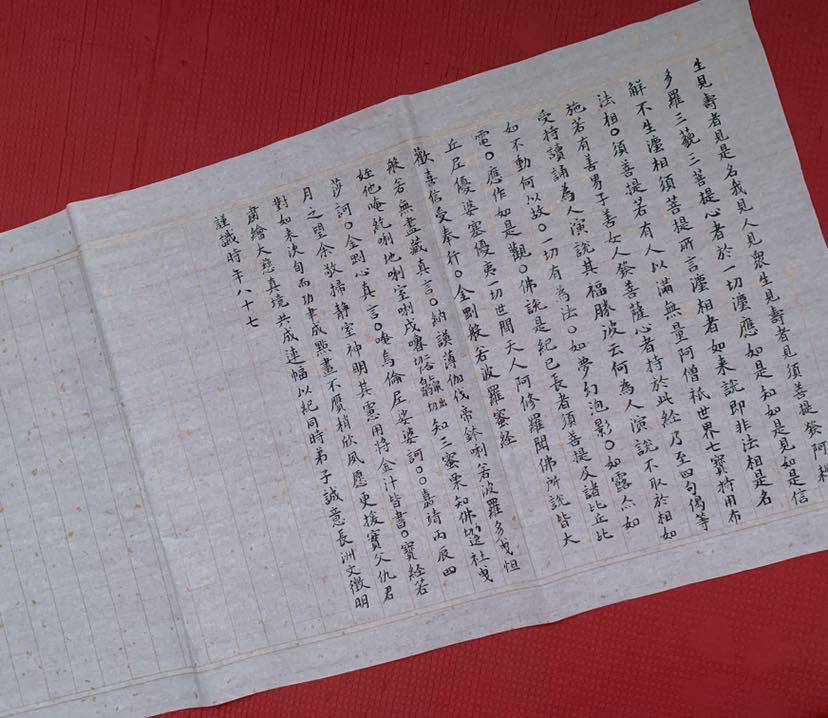 生見壽者見是名我見人見衆生見壽者見須菩提發阿耨
多羅三藐三菩提心者於一切灋應如是知如是見如是信
解不生灋相須菩提所言灋相者如来説即非法相是名
法相○須菩提若有人以滿無量阿僧祇世界七寶持用布
施若有善男子善女人發菩薩心者持於此經乃至四句偈等
受持讀誦為人演説其福勝波云何為人演説不取於相如
如不動何以故○一切有為法○如夢幻泡影○如露亦如
電○應作如是觀○佛説是經已長者須菩提及諸比丘比
丘尼優婆塞優夷一切世間天人阿修羅聞佛所説皆大
歡喜信受奉行○金剛般若波羅蜜經
般若無盡藏真言○納謨薄伽伐帝鉢唎若波羅多曳怛
姪他唵紇唎地唎室唎戌嚕知三蜜栗知佛社曳
莎訶○金剛心真言○唵烏倫尼娑婆訶○○嘉靖丙辰四
月之望余敬掃静室神明其慮用將金汁皆書○寶經若
對如来決旬而功書成點畫不贋稍欣夙愿更援實父仇君
肅繪大慈真境共成連幅以紀同時弟子誠意長洲文徵明
謹識時年八十七